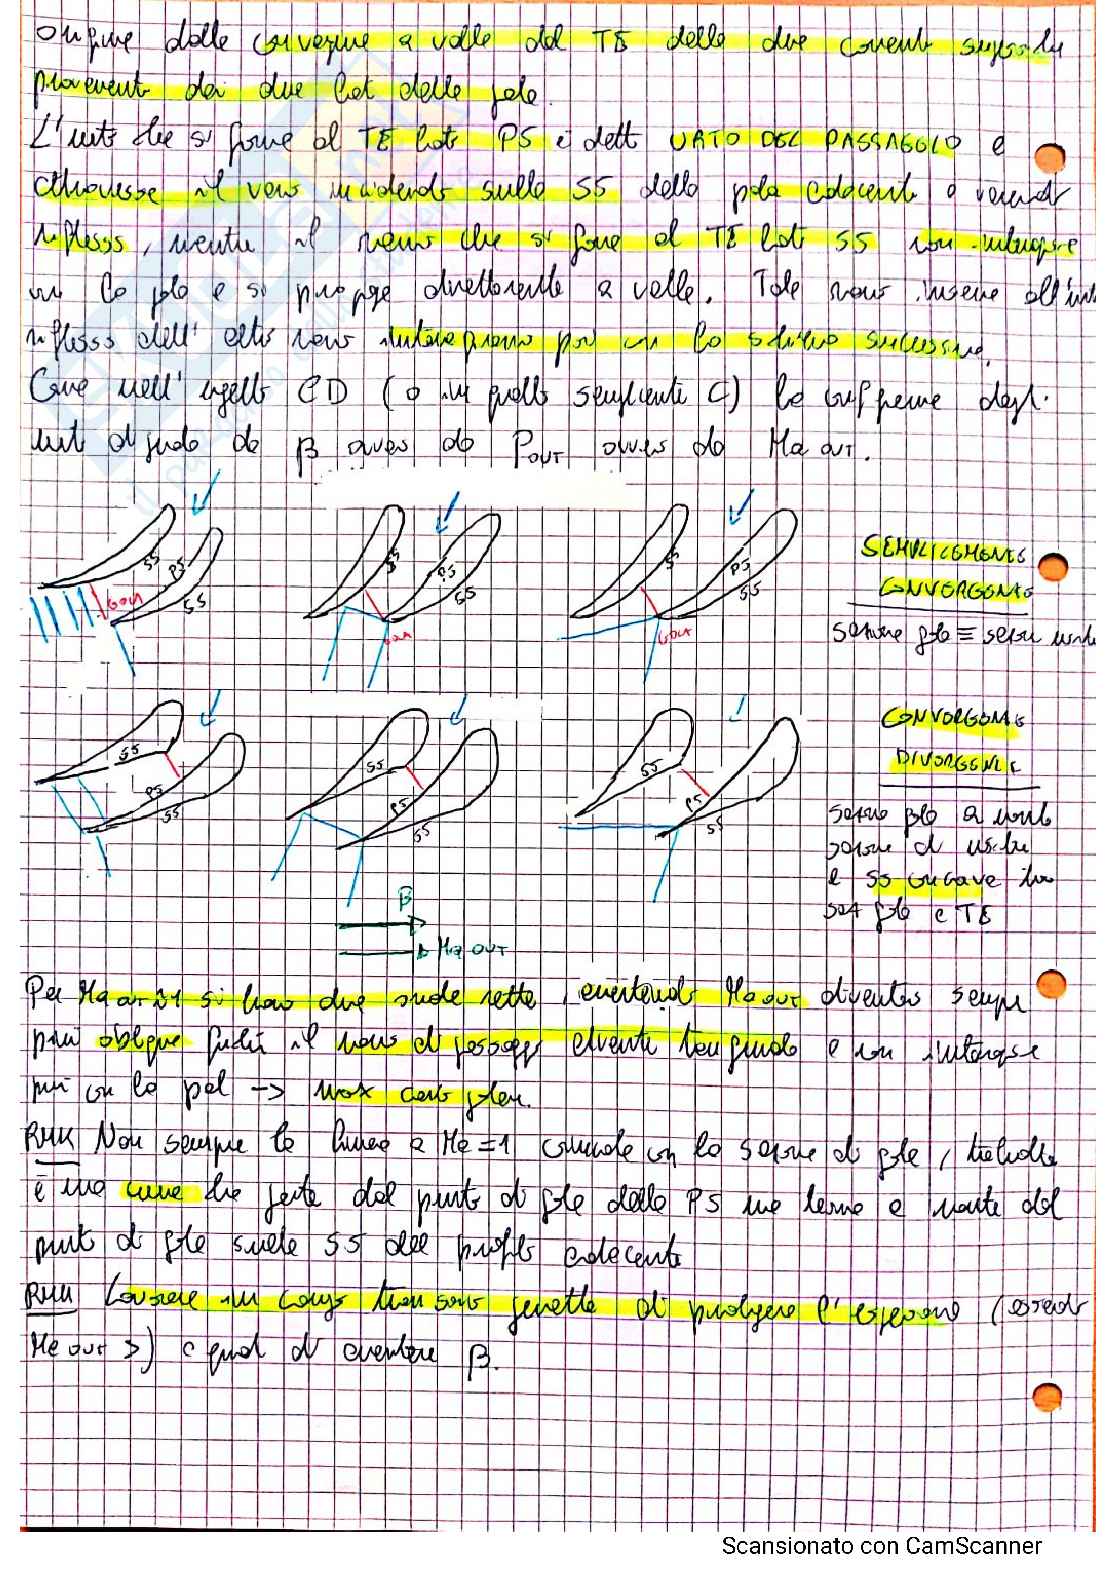 origine dalla convergenza a valle del TE delle due correnti supersoniche
provenienti dai due lati della pala.
L'urto che si forma al TE lato PS è detto URTO DEL PASSAGGIO e
attraversa il vano incidendo sulla SS della pala adiacente e venendo
riflesso, mentre il ramo che si forma al TE lato SS non interagisce
con la pala e si propaga direttamente a valle. Tale ramo insieme all'urto
riflesso dell'altro ramo interagiranno poi con la schiera successiva.
Come nell'ugello CD (o in quello semplicemente C) la configurazione degli
urti dipende da β ovvero da POUT ovvero da Ma OUT.
SS PS SS GOLA
SS PS SS GOLA
S PS SS GOLA
SEMPLICEMENTE
CONVERGENTE
sezione gola ≡ sezione uscita
SS PS SS
SS PS SS
SS PS SS
CONVERGENTE
DIVERGENTE
sezione gola a monte
sezione di uscita
e SS concava tra
sez gola e TE
β
Ma OUT
Per Ma OUT ≈1 si hanno due onde rette, aumentando Ma OUT diventano sempre
più oblique finché il ramo di passaggio diventa tangenziale e non interagisce
più con la pala -> max carico palare.
RMK Non sempre la linea a Ma=1 coincide con la sezione di gola, talvolta
è una curva che parte dal punto di gola della PS ma termina a monte del
punto di gola sulla SS del profilo adiacente
RMK Lavorare in campo transonico permette di prolungare l'espansione (essendo
Ma OUT >) e quindi di aumentare β.
Scansionato con CamScanner